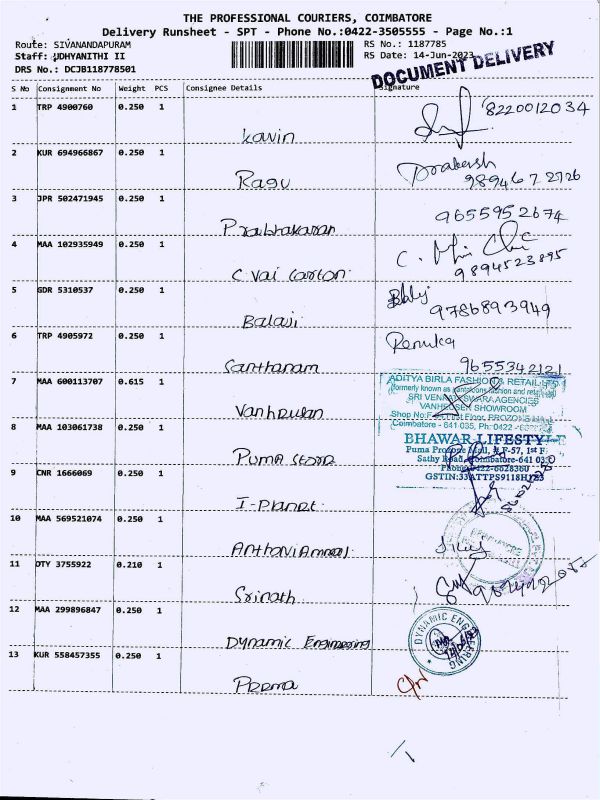 THE PROFESSIONAL COURIERS, COIMBATORE
Delivery Runsheet - SPT - Phone No.:0422-3505555 - Page No.:1
Route: SIVANANDAPURAM RS No.: 1187785
Staff: UDHYANITHI II RS Date: 14-Jun-2023
DRS No.: DCJB118778501
DOCUMENT DELIVERY
S No Consignment No Weight PCS Consignee Details Signature
1 TRP 4900760 0.250 1 8220012034
Kavin
2 KUR 694966867 0.250 1 Prakash
Ragu
3 JPR 502471945 0.250 1 9655952674
Prabhakaran
4 MAA 102935949 0.250 1
C Vai Carton 9894523895
5 GDR 5310537 0.250 1
Balaji 9786893949
6 TRP 4905972 0.250 1 Renuka
Santhanam 9655342121
7 MAA 600113707 0.615 1 ADITYA BIRLA FASHION & RETAIL LTD
(formerly known as Pantaloons Fashion and retail
SRI VENKATESWARA AGENCIES
VANHEUSEN SHOWROOM
Vanheusan
Coimbatore - 641 035, Ph: 0422 -
8 MAA 103061738 0.250 1
BHAWAR LIFESTYLE
Puma Prozone Mall, # F-57, 1st F.
Puma Store
Sathy Road, Coimbatore-641 035
Phone: 0422-6628360
9 CNR 1666069 0.250 1
I-Planet
10 MAA 569521074 0.250 1
Anthavi Ammal
11 OTY 3755922 0.210 1
Srinath
12 MAA 299896847 0.250 1
DYNAMIC ENGINEERING
Dynamic Engineering
13 KUR 558457355 0.250 1
Prema